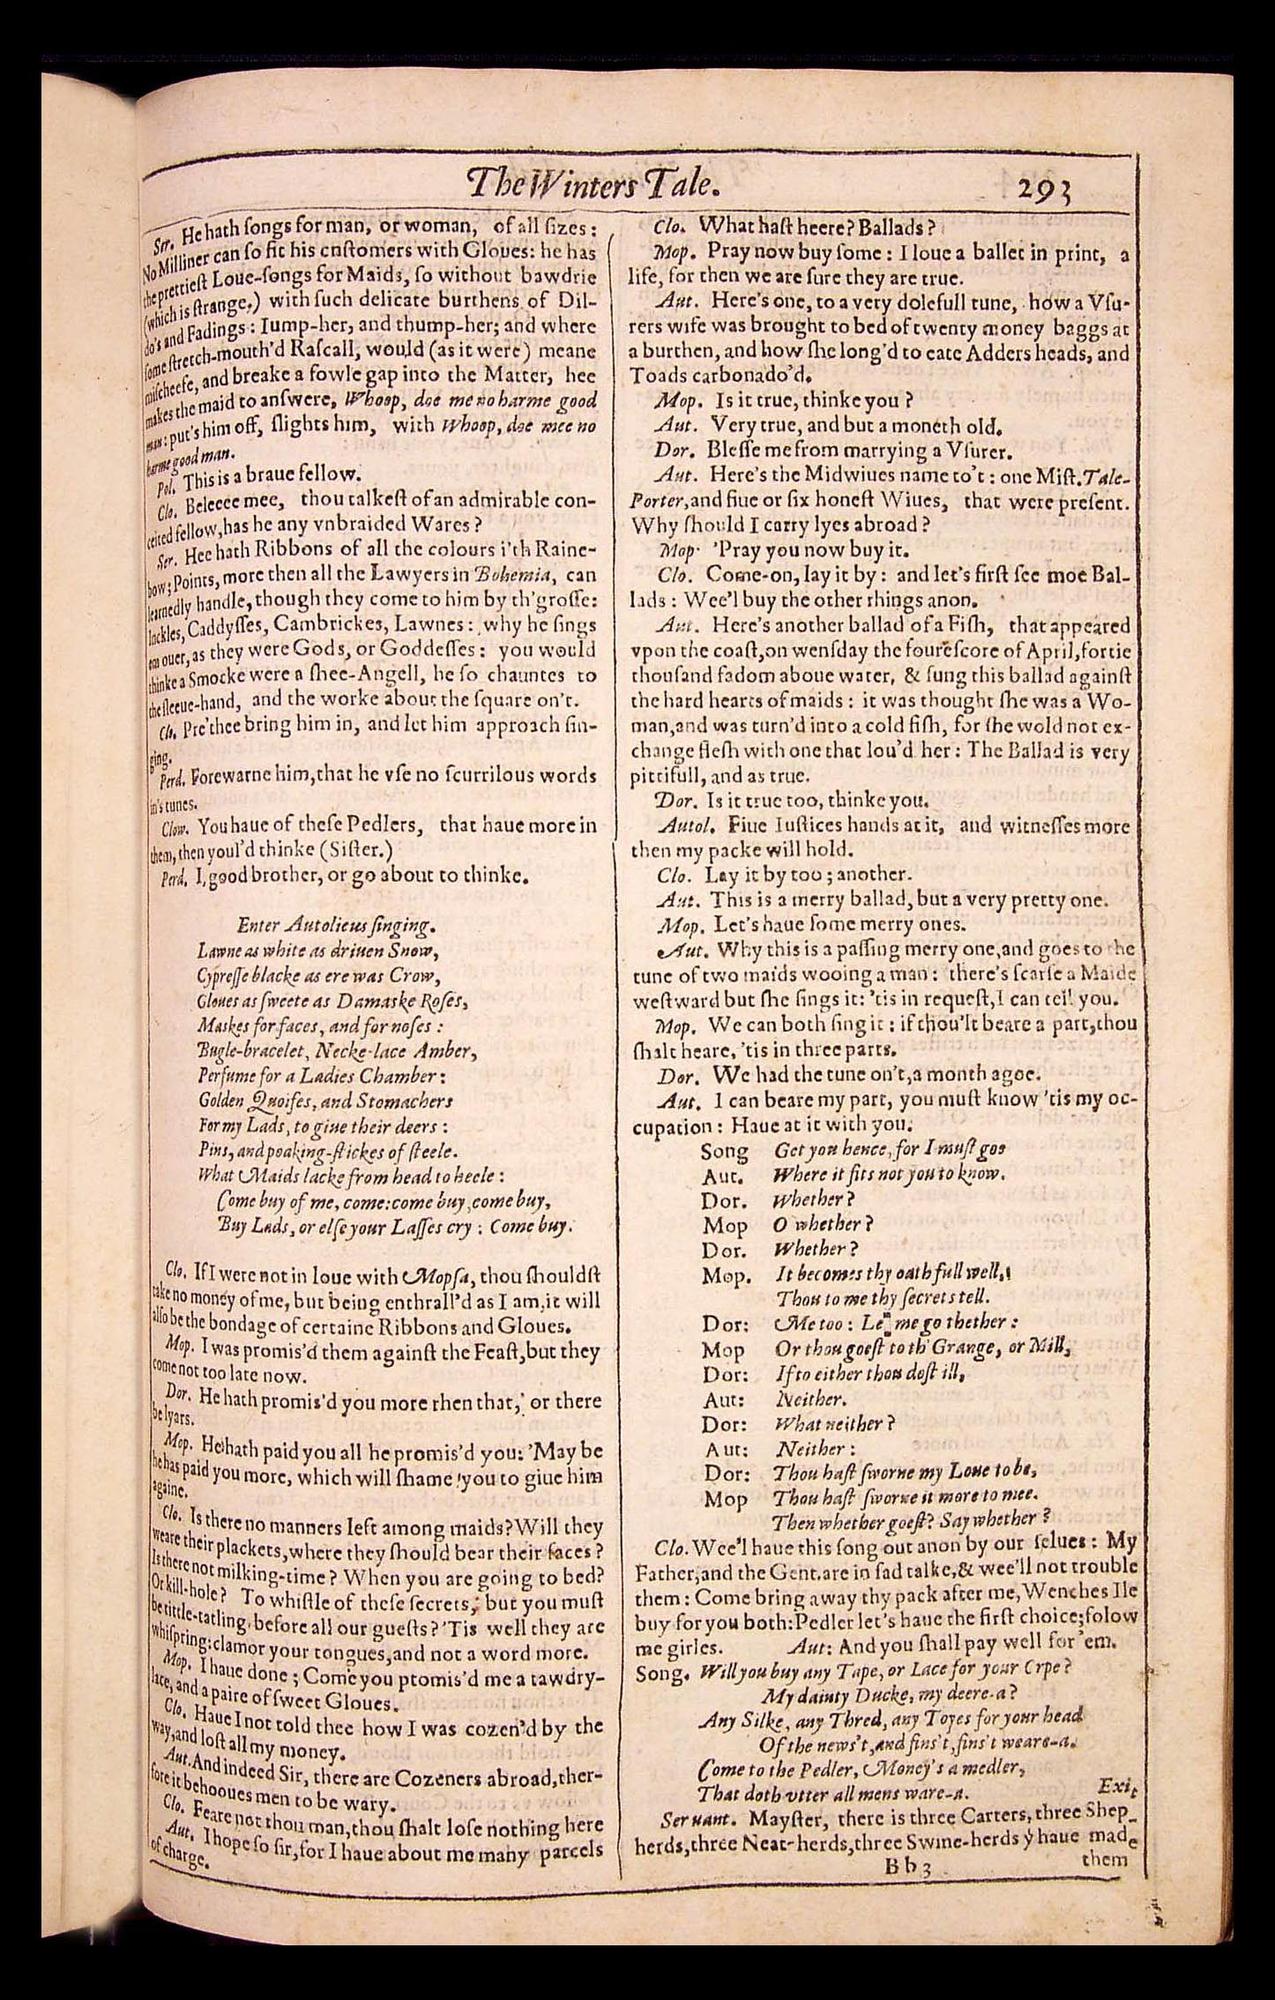 The Winters Tale.
293
Ser. He hath ſongs for man, or woman, of all ſizes:
No Milliner can ſo fit his cuſtomers with Gloues: he has
the prettieſt Loue-ſongs for Maids, ſo without bawdrie
(which is ſtrange,) with ſuch delicate burthens of Dil-
do's and Fadings: Iump-her, and thump-her; and where
ſome ſtretch-mouth'd Raſcall, would (as it were) meane
miſcheefe, and breake a fowle gap into the Matter, hee
makes the maid to anſwere, Whoop, doe me no harme good
man: put's him off, ſlights him, with Whoop, doe mee no
harme good man.
Pol. This is a braue fellow.
Clo. Beleeee mee, thou talkeſt of an admirable con-
ceited fellow, has he any vnbraided Wares?
Ser. Hee hath Ribbons of all the colours i'th Raine-
bow; Points, more then all the Lawyers in Bohemia, can
learnedly handle, though they come to him by th'groſſe:
Inckles, Caddyſſes, Cambrickes, Lawnes: why he ſings
em ouer, as they were Gods, or Goddeſſes: you would
thinke a Smocke were a ſhee-Angell, he ſo chauntes to
the ſleeue-hand, and the worke about the ſquare on't.
Clo. Pre'thee bring him in, and let him approach ſin-
ging.
Perd. Forewarne him, that he vſe no ſcurrilous words
in's tunes.
Clow. You haue of theſe Pedlers, that haue more in
them, then youl'd thinke (Siſter.)
Perd. I, good brother, or go about to thinke.
Enter Autolicus ſinging.
Lawne as white as driuen Snow,
Cypreſſe blacke as ere was Crow,
Gloues as ſweete as Damaske Roſes,
Maskes for faces, and for noſes:
Bugle-bracelet, Necke-lace Amber,
Perfume for a Ladies Chamber:
Golden Quoifes, and Stomachers
For my Lads, to giue their deers:
Pins, and poaking-ſtickes of ſteele.
What Maids lacke from head to heele:
Come buy of me, come: come buy, come buy,
Buy Lads, or elſe your Laſſes cry: Come buy.
Clo. If I were not in loue with Mopſa, thou ſhouldſt
take no money of me, but being enthrall'd as I am, it will
alſo be the bondage of certaine Ribbons and Gloues.
Mop. I was promis'd them againſt the Feaſt, but they
come not too late now.
Dor. He hath promis'd you more then that, or there
be lyars.
Mop. He hath paid you all he promis'd you: 'May be
he has paid you more, which will ſhame you to giue him
againe.
Clo. Is there no manners left among maids? Will they
weare their plackets, where they ſhould bear their faces?
Is there not milking-time? When you are going to bed?
Or kill-hole? To whiſtle of theſe ſecrets, but you muſt
be tittle-tatling, before all our gueſts? 'Tis well they are
whiſpring: clamor your tongues, and not a word more.
Mop. I haue done; Come you promis'd me a tawdry-
lace, and a paire of ſweet Gloues.
Clo. Haue I not told thee how I was cozen'd by the
way, and loſt all my money.
Aut. And indeed Sir, there are Cozeners abroad, ther-
fore it behooues men to be wary.
Clo. Feare not thou man, thou ſhalt loſe nothing here
Aut. I hope ſo ſir, for I haue about me many parcels
of charge.
Clo. What haſt heere? Ballads?
Mop. Pray now buy ſome: I loue a ballet in print, a
life, for then we are ſure they are true.
Aut. Here's one, to a very dolefull tune, how a Vſu-
rers wife was brought to bed of twenty money baggs at
a burthen, and how ſhe long'd to eate Adders heads, and
Toads carbonado'd.
Mop. Is it true, thinke you?
Aut. Very true, and but a moneth old.
Dor. Bleſſe me from marrying a Vſurer.
Aut. Here's the Midwiues name to't: one Miſt. Tale-
Porter, and fiue or ſix honeſt Wiues, that were preſent.
Why ſhould I carry lyes abroad?
Mop. 'Pray you now buy it.
Clo. Come-on, lay it by: and let's firſt ſee moe Bal-
lads: Wee'l buy the other things anon.
Aut. Here's another ballad of a Fiſh, that appeared
vpon the coaſt, on wenſday the foureſcore of April, fortie
thouſand fadom aboue water, & ſung this ballad againſt
the hard hearts of maids: it was thought ſhe was a Wo-
man, and was turn'd into a cold fiſh, for ſhe wold not ex-
change fleſh with one that lou'd her: The Ballad is very
pittifull, and as true.
Dor. Is it true too, thinke you.
Autol. Fiue Iuſtices hands at it, and witneſſes more
then my packe will hold.
Clo. Lay it by too; another.
Aut. This is a merry ballad, but a very pretty one.
Mop. Let's haue ſome merry ones.
Aut. Why this is a paſſing merry one, and goes to the
tune of two maids wooing a man: there's ſcarſe a Maide
weſtward but ſhe ſings it: 'tis in requeſt, I can tell you.
Mop. We can both ſing it: if thou'lt beare a part, thou
ſhalt heare, 'tis in three parts.
Dor. We had the tune on't, a month agoe.
Aut. I can beare my part, you muſt know 'tis my oc-
cupation: Haue at it with you:
Song Get you hence, for I muſt goe
Aut. Where it fits not you to know.
Dor. Whether?
Mop O whether?
Dor. Whether?
Mop. It becomes thy oath full well,
Thou to me thy ſecrets tell.
Dor: Me too: Let me go thether:
Mop Or thou goeſt to th' Grange, or Mill,
Dor: If to either thou doſt ill,
Aut: Neither.
Dor: What neither?
Aut: Neither:
Dor: Thou haſt ſworne my Loue to be,
Mop Thou haſt ſworne it more to mee.
Then whether goeſt? Say whether?
Clo. Wee'l haue this ſong out anon by our ſelues: My
Father, and the Gent. are in ſad talke, & wee'll not trouble
them: Come bring away thy pack after me, Wenches Ile
buy for you both: Pedler let's haue the firſt choice; folow
me girles. Aut: And you ſhall pay well for 'em.
Song. Will you buy any Tape, or Lace for your Crpe?
My dainty Ducke, my deere-a?
Any Silke, any Thred, any Toyes for your head
Of the news't, and fins't, fins't weare-a.
Come to the Pedler, Money's a medler,
That doth vtter all mens ware-a. Exit
Seruant. Mayſter, there is three Carters, three Shep-
herds, three Neat-herds, three Swine-herds ẏ haue made
Bb3 them